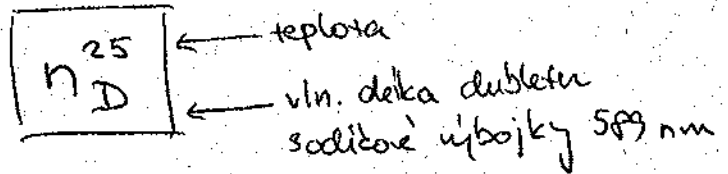 n 25 D
teplota
vln. délka dubletu
sodíkové výbojky 589 nm